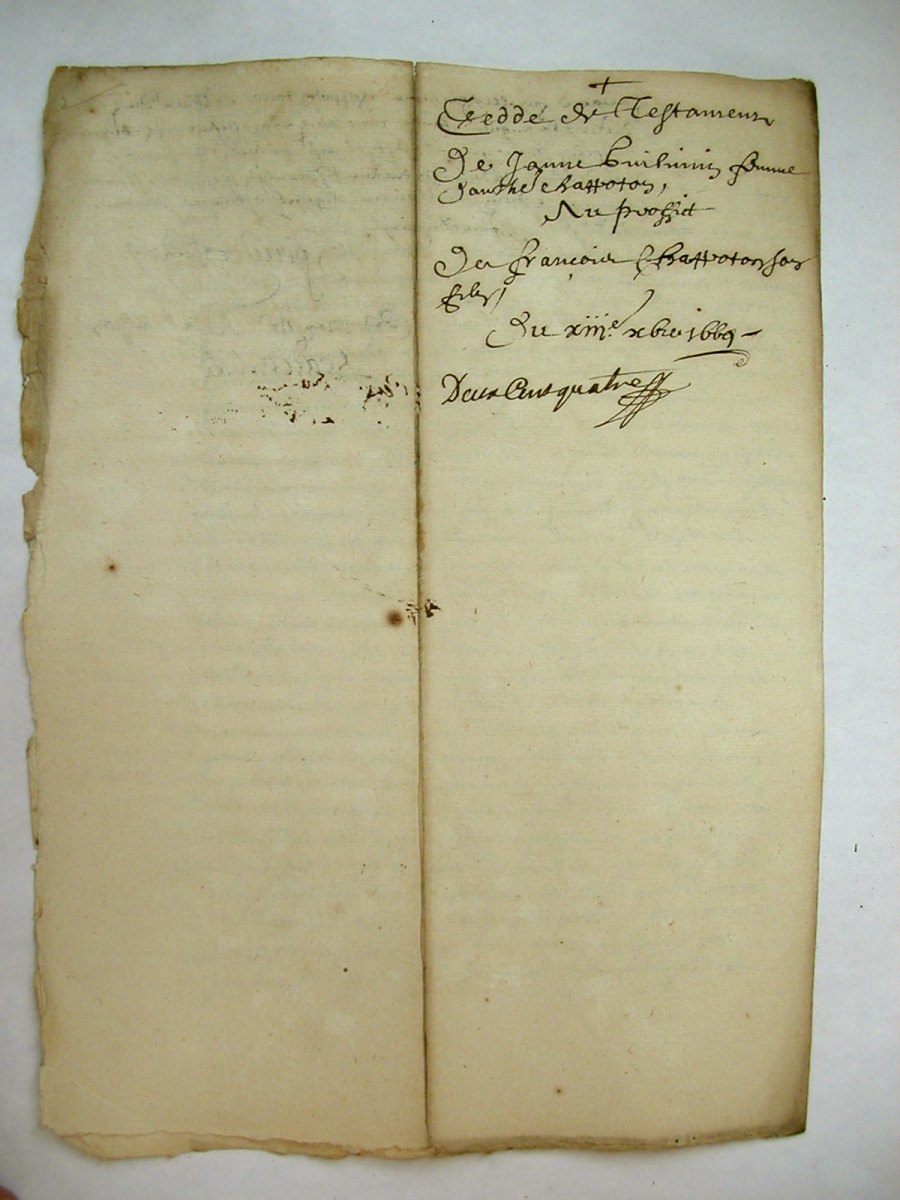 +
Cedde de Testament
De Janne Guilimin femme
dauthe Chappoton,
Au proffict
De françois Chappoton son
filz,
Du xiii.e xbre 1669
Deux Cens quatre